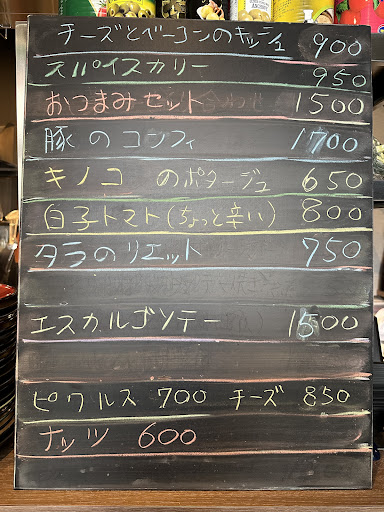 チーズとベーコンのキッシュ 900
スパイスカリー 950
おつまみセット 1500
豚のコンフィ 1700
キノコ のポタージュ 650
白子トマト(ちょっと辛い) 800
タラのリエット 750
エスカルゴソテー 1500
ピクルス 700 チーズ 850
ナッツ 600